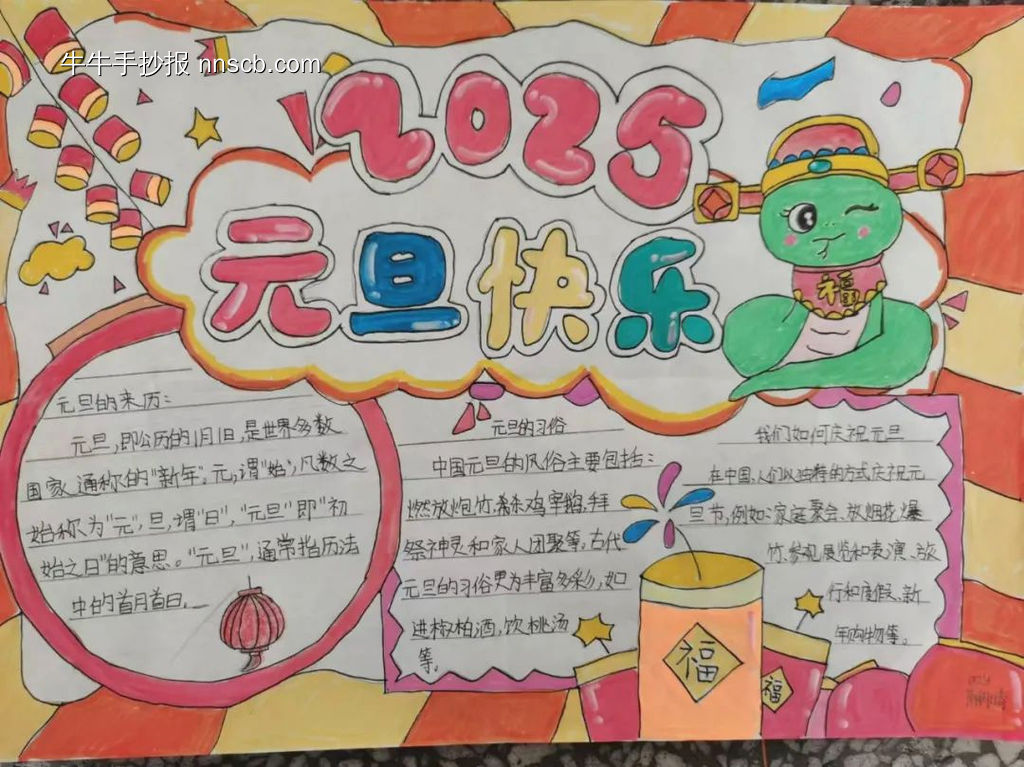 牛牛手抄报 nnscb.com
2025
元旦快乐
福
元旦的来历:
元旦,即公历的1月1日,是世界多数
国家通称的"新年"。元,谓"始",凡数之
始称为"元",旦,谓"日","元旦"即"初
始之日"的意思。"元旦",通常指历法
中的首月首日。
元旦的习俗
中国元旦的风俗主要包括:
燃放炮竹,杀鸡宰鹅,拜
祭神灵和家人团聚等,古代
元旦的习俗更为丰富多彩,如
进椒柏酒,饮桃汤
等。
我们如何庆祝元旦
在中国,人们以独特的方式庆祝元
旦节,例如:家庭聚会、放烟花爆
竹、参观展览和表演、旅
行和度假、新
年购物等。
福
福